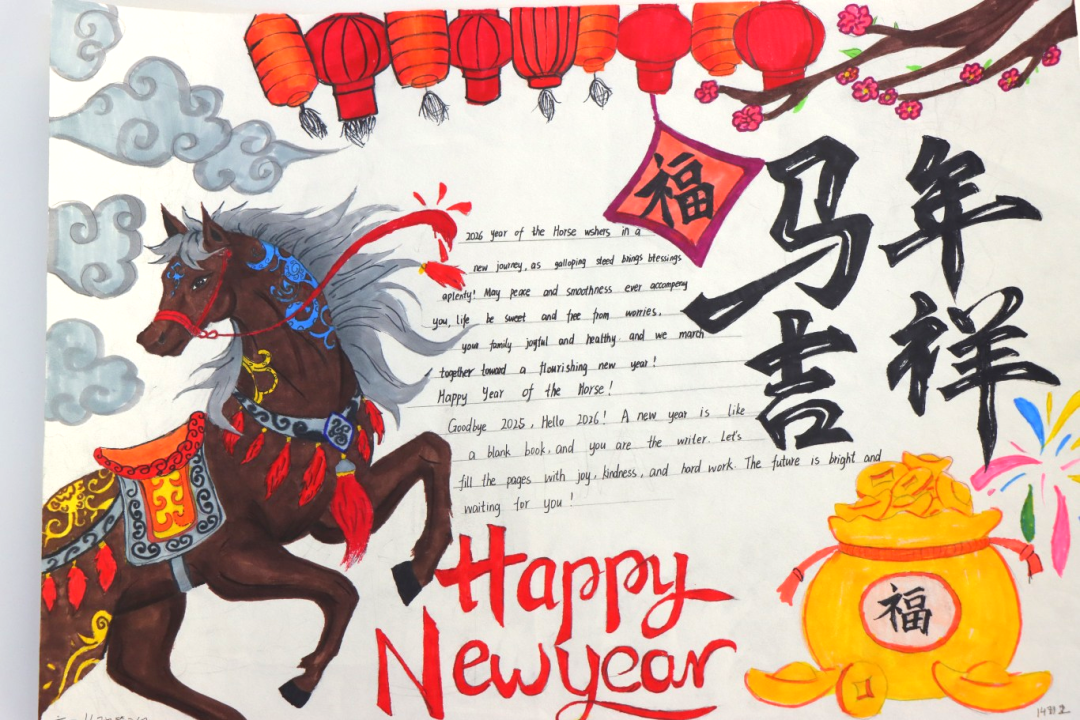 福
马年
吉祥
2026 year of the Horse wshers in a
new journey, as galloping steed brings blessings
aplenty! May peace and smoothness ever accompany
you, life be sweet and free from worries.
your family joyful and healthy. and we march
together toward a flourishing new year!
Happy Year of the Horse!
Goodbye 2025, Hello 2026! A new year is like
a blank book, and you are the writer. Let's
fill the pages with joy, kindness, and hard work. The future is bright and
waiting for you!
Happy
New year
福